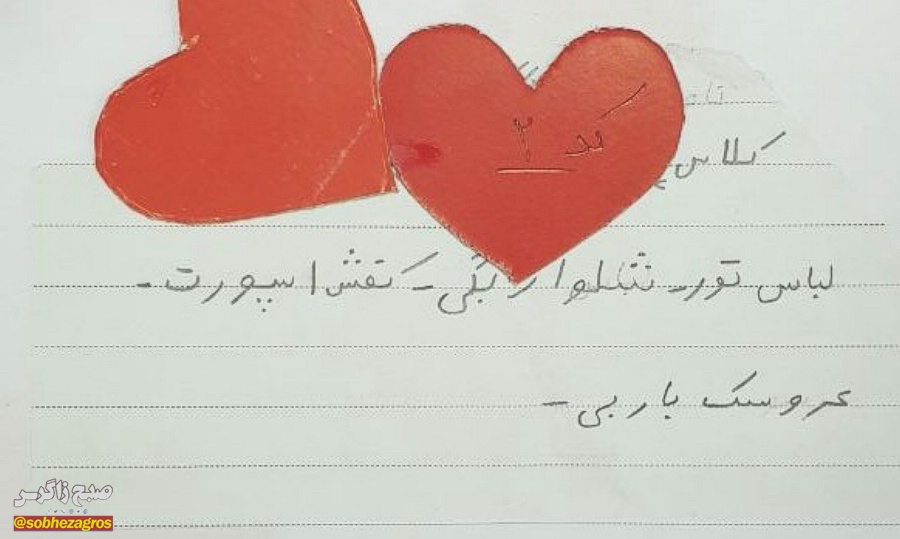 کد ۲
کلاس
لباس تور - شلوار لگی - کفش اسپورت -
عروسک باربی -
صبح زاگرس
@sobhezagros